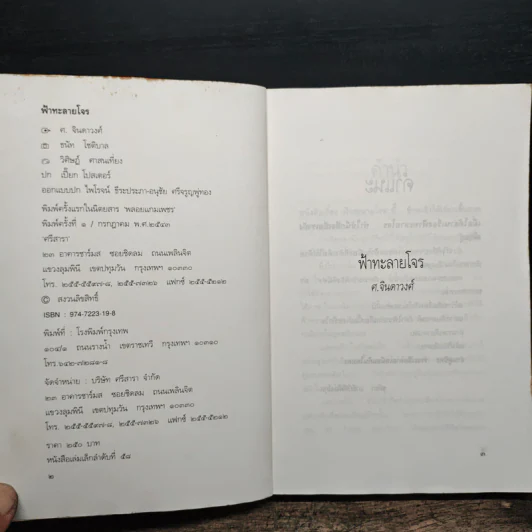 ฟ้าทะลายโจร
ศ. จินดาวงศ์
ธนิต โชติบาล
วิศิษฏ์ ศาสนเที่ยง
ปก เปี๊ยก โปสเตอร์
ออกแบบปก ไพโรจน์ ธีระประภา-อนุชัย ศรีจรูญพู่ทอง
พิมพ์ครั้งแรกในนิตยสาร "พลอยแกมเพชร"
พิมพ์ครั้งที่ ๑ / กรกฎาคม พ.ศ.๒๕๔๓
ศรีสารา
๒๓ อาคารชาร์มส ซอยชิดลม ถนนเพลินจิต
แขวงลุมพินี เขตปทุมวัน กรุงเทพฯ ๑๐๓๓๐
โทร. ๒๕๕-๕๕๑๗-๘, ๒๕๕-๗๓๒๖ แฟกซ์ ๒๕๕-๕๒๑๒
© สงวนลิขสิทธิ์
ISBN : 974-7223-19-8
พิมพ์ที่ : โรงพิมพ์กรุงเทพ
๑๐๔/๑ ถนนรางน้ำ เขตราชเทวี กรุงเทพฯ ๑๐๓๑๐
โทร.๖๔๒-๗๒๘๑-๘
จัดจำหน่าย : บริษัท ศรีสารา จำกัด
๒๓ อาคารชาร์มส ซอยชิดลม ถนนเพลินจิต
แขวงลุมพินี เขตปทุมวัน กรุงเทพฯ ๑๐๓๓๐
โทร. ๒๕๕-๕๕๑๗-๘, ๒๕๕-๗๓๒๖ แฟกซ์ ๒๕๕-๕๒๑๒
ราคา ๒๕๐ บาท
หนังสือเล่มเล็กลำดับที่ ๕๘
๒
ฟ้าทะลายโจร
ศ.จินดาวงศ์
๓